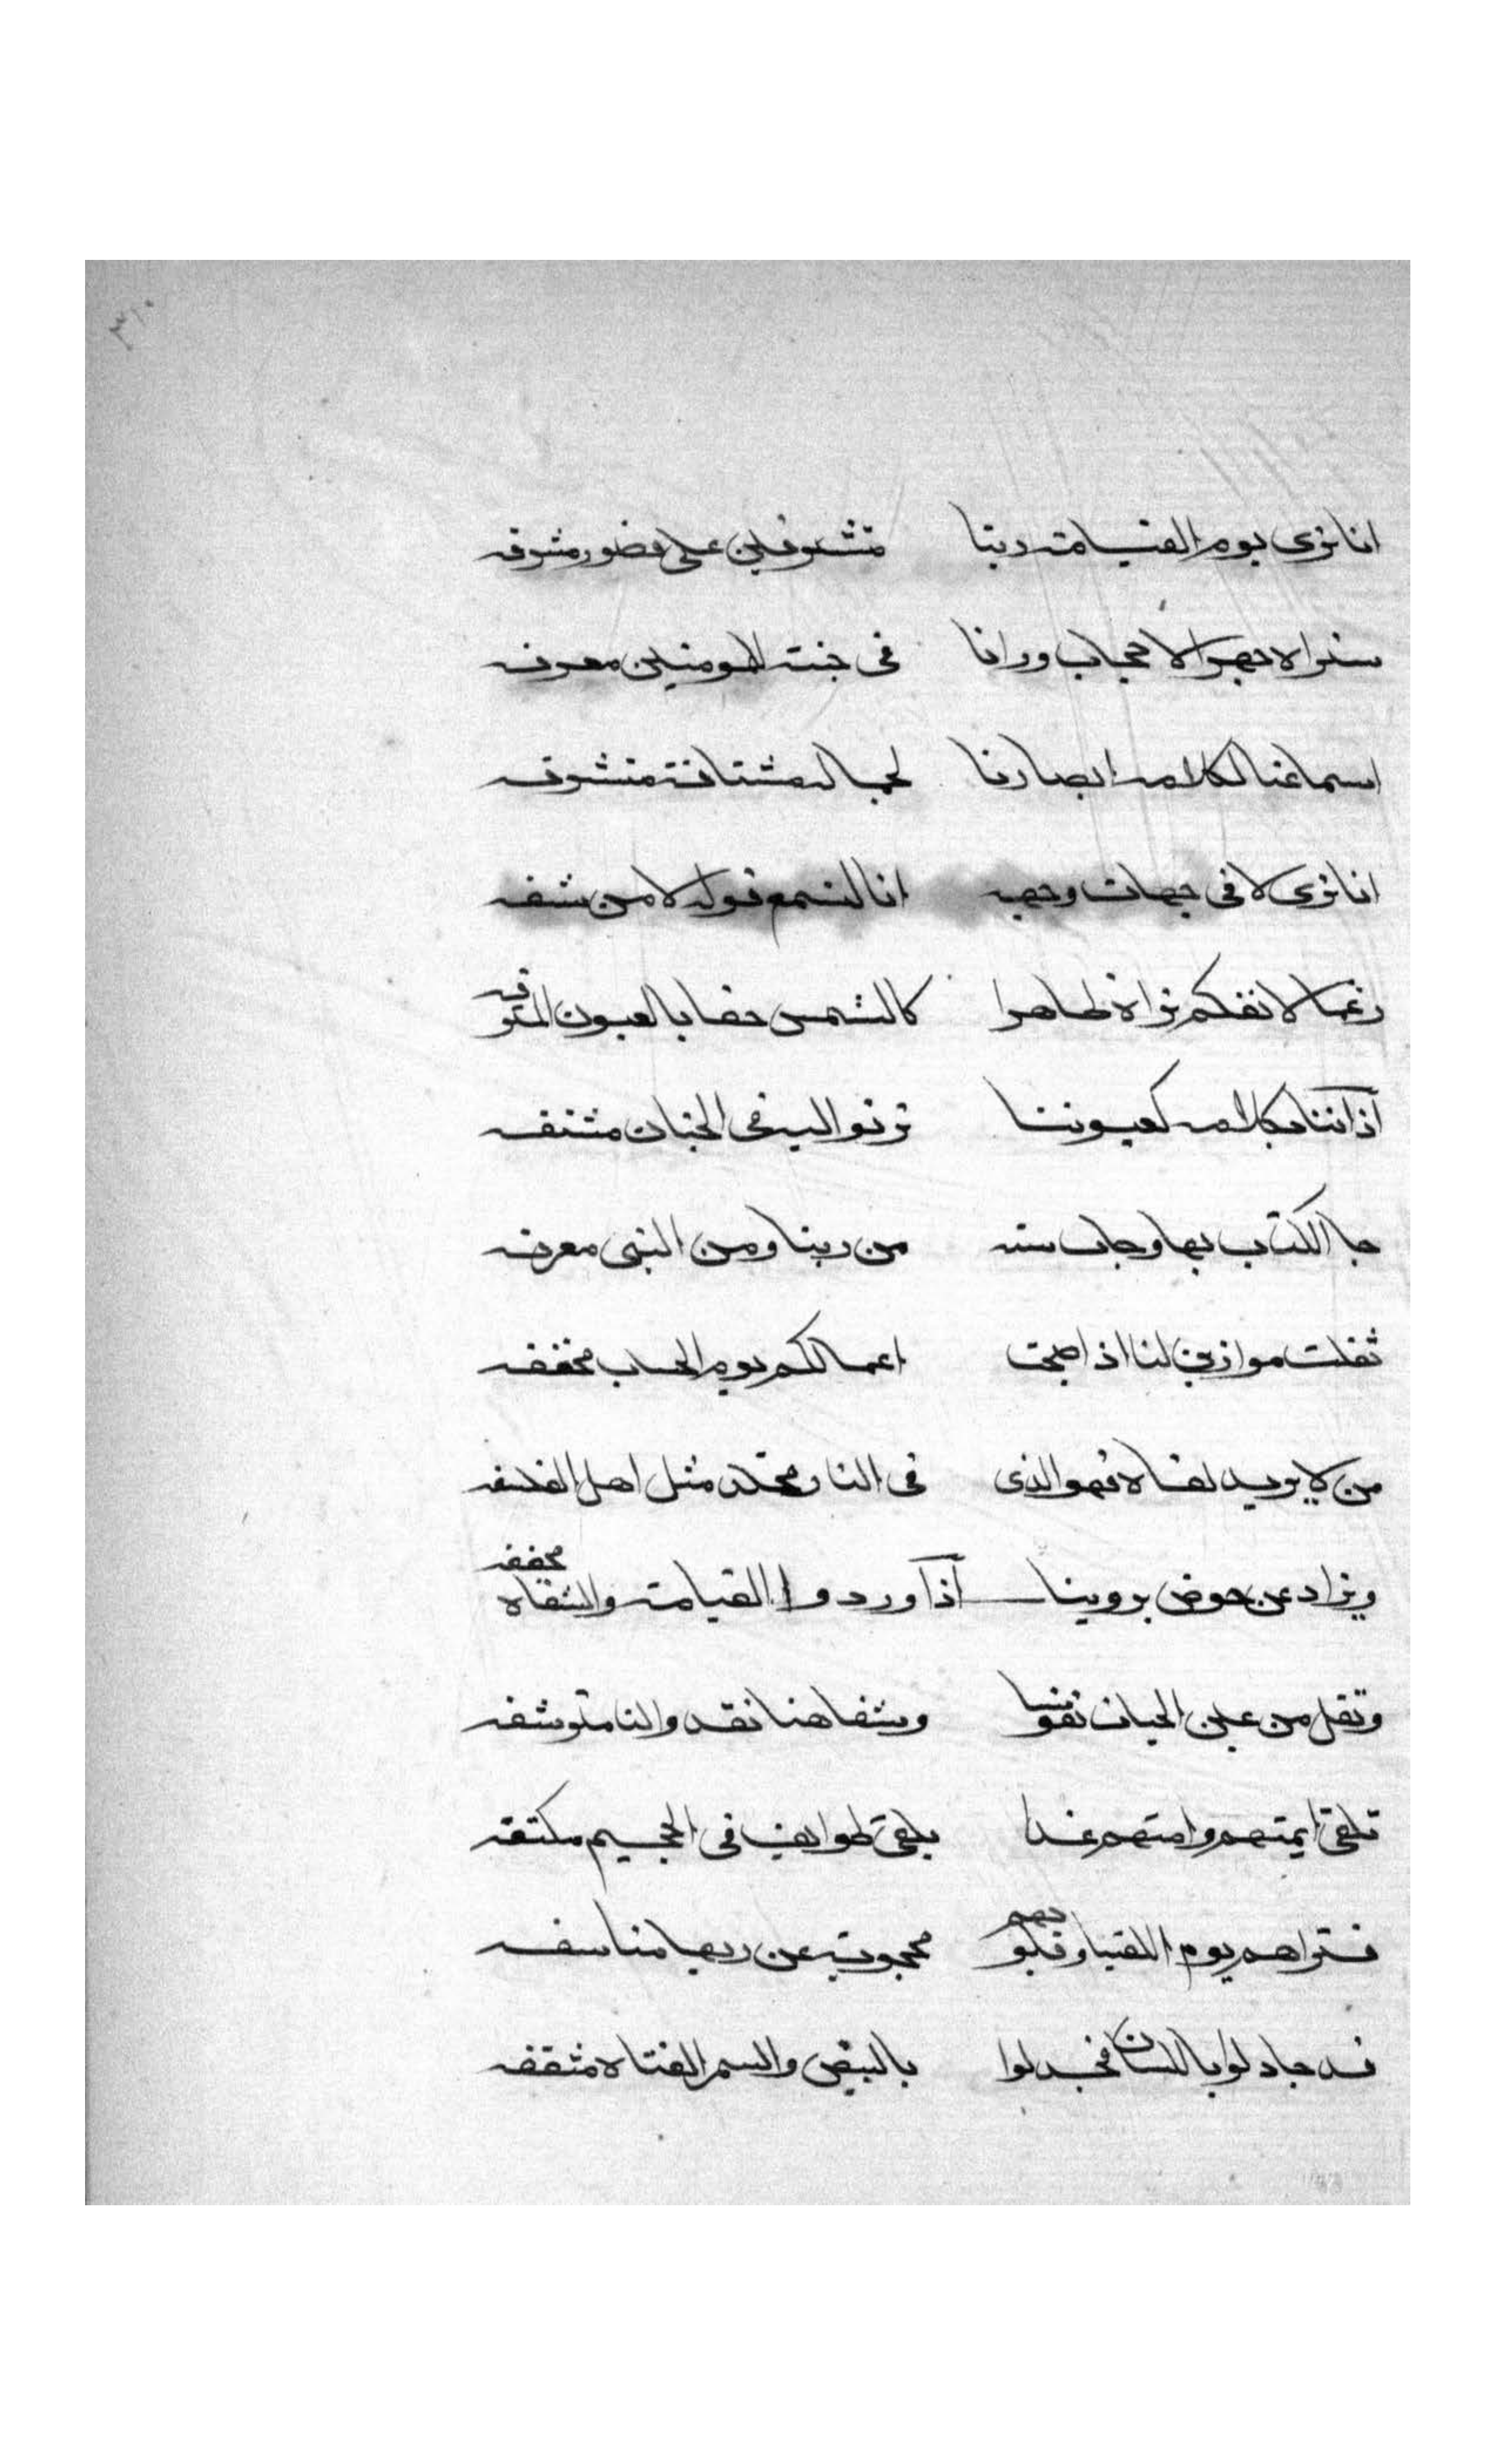 ٣١٠
انا نرى يوم القيامة ربنا متشوفين على قصور مشرفه
سنراه جهرا لا حجاب ورانا فى جنة للمومنين معرفه
اسماعنا لكلامه ابصارنا لجماله مشتاقة متشوفه
انا نرى لا فى جهات وجهه انا لنسمع قوله لا من شفه
رغما لانفكم نراه ظاهرا كالشمس حقا بالعيون المترفه
آذاننا بكلامه كعيوننا ترنو اليه فى الجنان مشنفه
جا الكتاب بها وجات سنه من ربنا ومن النبى معرفه
ثقلت موازين لنا اذ اصبحت اعمالكم يوم الحساب مخففه
من لا يريد لقاه فهو الذى فى النار مخلد مثل اهل الفلسفه
ويزاد عن حوض يروينا آذا وردوا القيامة والشفاه مجففه
وتقل من عين الحيات نفوسنا وشفاهنا نقد والنا متوشفه
تلقى ايمتهم وامتهم غدا يلقى طوايف فى الجحيم مكتفه
فتراهم يوم اللقيا وقلوبهم محجوبة عن ربها متاسفه
قد جادلوا باللسان فجدلوا بالبيض والسمر القناه مثقفه